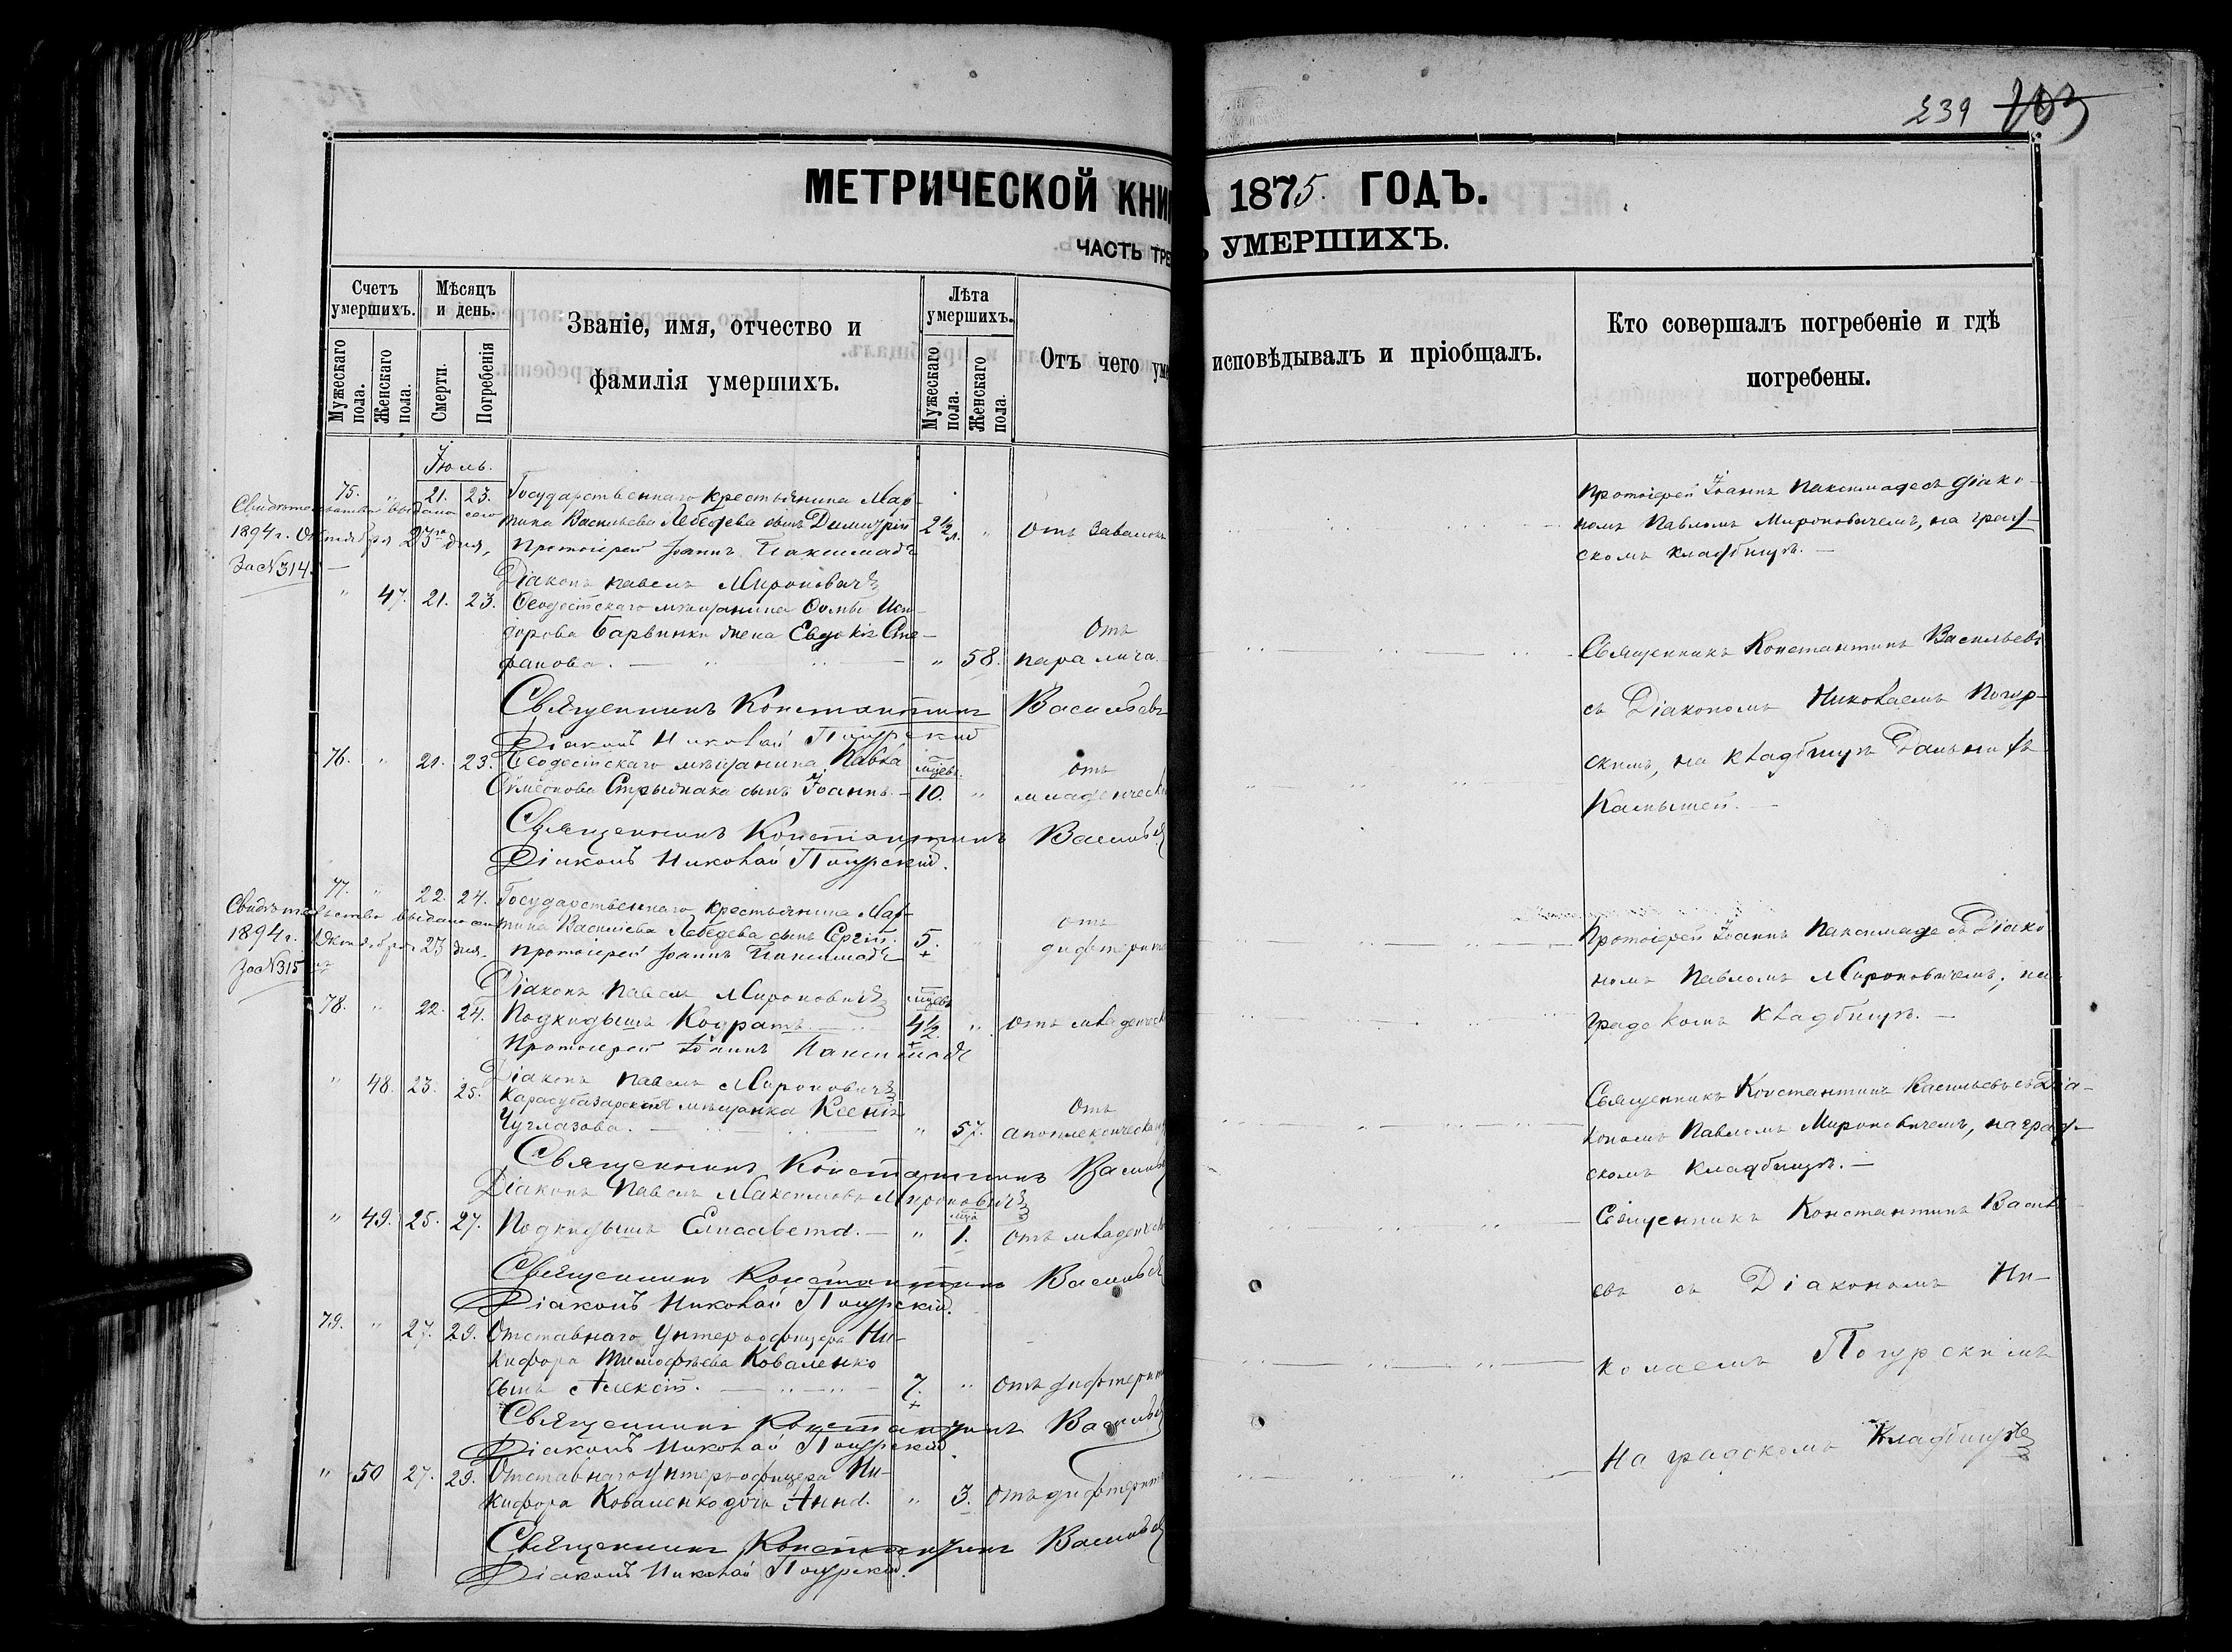 239 103
МЕТРИЧЕСКОЙ КНИ
ЧАСТЬ ТРЕ
Счетъ умершихъ.
Мужескаго пола.
Женскаго пола.
Мѣсяцъ и день.
Смерти.
Погребенія
Званіе, имя, отчество и
фамилія умершихъ.
Лѣта умершихъ.
Мужескаго пола.
Женскаго пола.
Отъ чего уме
Іюль.
75. " 21. 23. Государственнаго крестьянина Мар-
тина Васильева Лебедева сынъ Димитрій 2½ л. " Отъ завалокъ
Протоіерей Іоаннъ Паксимаде
Діаконъ Павелъ Мироновичъ
Свидѣтельство выдано сего
1894 г. Октября 23го дня,
За № 314. —
" 47. 21. 23. Ѳеодосійскаго мѣщанина Ѳомы Иси-
дорова Барвинки жена Евдокія Сте-
фанова. — " 58. Отъ
паралича.
Священникъ Константинъ Васильевъ
Діаконъ Николай Погурскій
76. " 21. 23. Ѳеодосійскаго мѣщанина Павла мцевъ. отъ
Симеонова Стрыжака сынъ Іоаннъ. — 10. " младенческ
Священникъ Константинъ Васильев
Діаконъ Николай Погурскій.
77. " 22. 24. Государственнаго крестьянина Мар-
тина Васильева Лебедева сынъ Сергій. 5. " отъ
дифтерита
Протоіерей Іоаннъ Паксимаде
Діаконъ Павелъ Мироновичъ
Свидѣтельство выдано
1894 г. Октября 23 дня,
За № 315
78. " 22. 24. Подкидышъ Кодратъ. мцевъ 4½ " Отъ младенческ
Протоіерей Іоаннъ Паксимаде
Діаконъ Павелъ Мироновичъ
" 48. 23. 25. Карасубазарская мѣщанка Ксенія
Чуглазова. — " 57. Отъ
апоплексическаго
Священникъ Константинъ Василь
Діаконъ Павелъ Максимовъ Мироновичъ
" 49. 25. 27. Подкидышъ Елисавета. — " 1. Отъ младенческ
Священникъ Константинъ Васильев
Діаконъ Николай Погурскій.
79. " 27. 29. Отставнаго унтеръ-офицера Ни-
кифора Тимофѣева Коваленко
сынъ Алексій. — 7. " Отъ дифтерита
Священникъ Константинъ Васильев
Діаконъ Николай Погурскій.
" 50 27. 29. Отставнаго унтеръ-офицера Ни-
кифора Коваленко дочь Анна. " 3. Отъ дифтерита
Священникъ Константинъ Васильев
Діаконъ Николай Погурскій.
1875. ГОДЪ.
УМЕРШИХЪ.
исповѣдывалъ и пріобщалъ.
Кто совершалъ погребеніе и гдѣ
погребены.
Протоіерей Іоаннъ Паксимаде съ Діако-
номъ Павломъ Мироновичемъ, на град-
скомъ кладбищѣ. —
Священникъ Константинъ Васильевъ
съ Діакономъ Николаемъ Погур-
скимъ, на кладбищѣ Дальнихъ
Камышей. —
Протоіерей Іоаннъ Паксимаде съ Діако
номъ Павломъ Мироновичемъ, на
градскомъ кладбищѣ. —
Священникъ Константинъ Васильевъ съ Діа-
кономъ Павломъ Мироновичемъ, на град-
скомъ кладбищѣ. —
Священникъ Константинъ Василь-
евъ съ Діакономъ Ни-
колаемъ Погурскимъ
На градскомъ Кладбищѣ